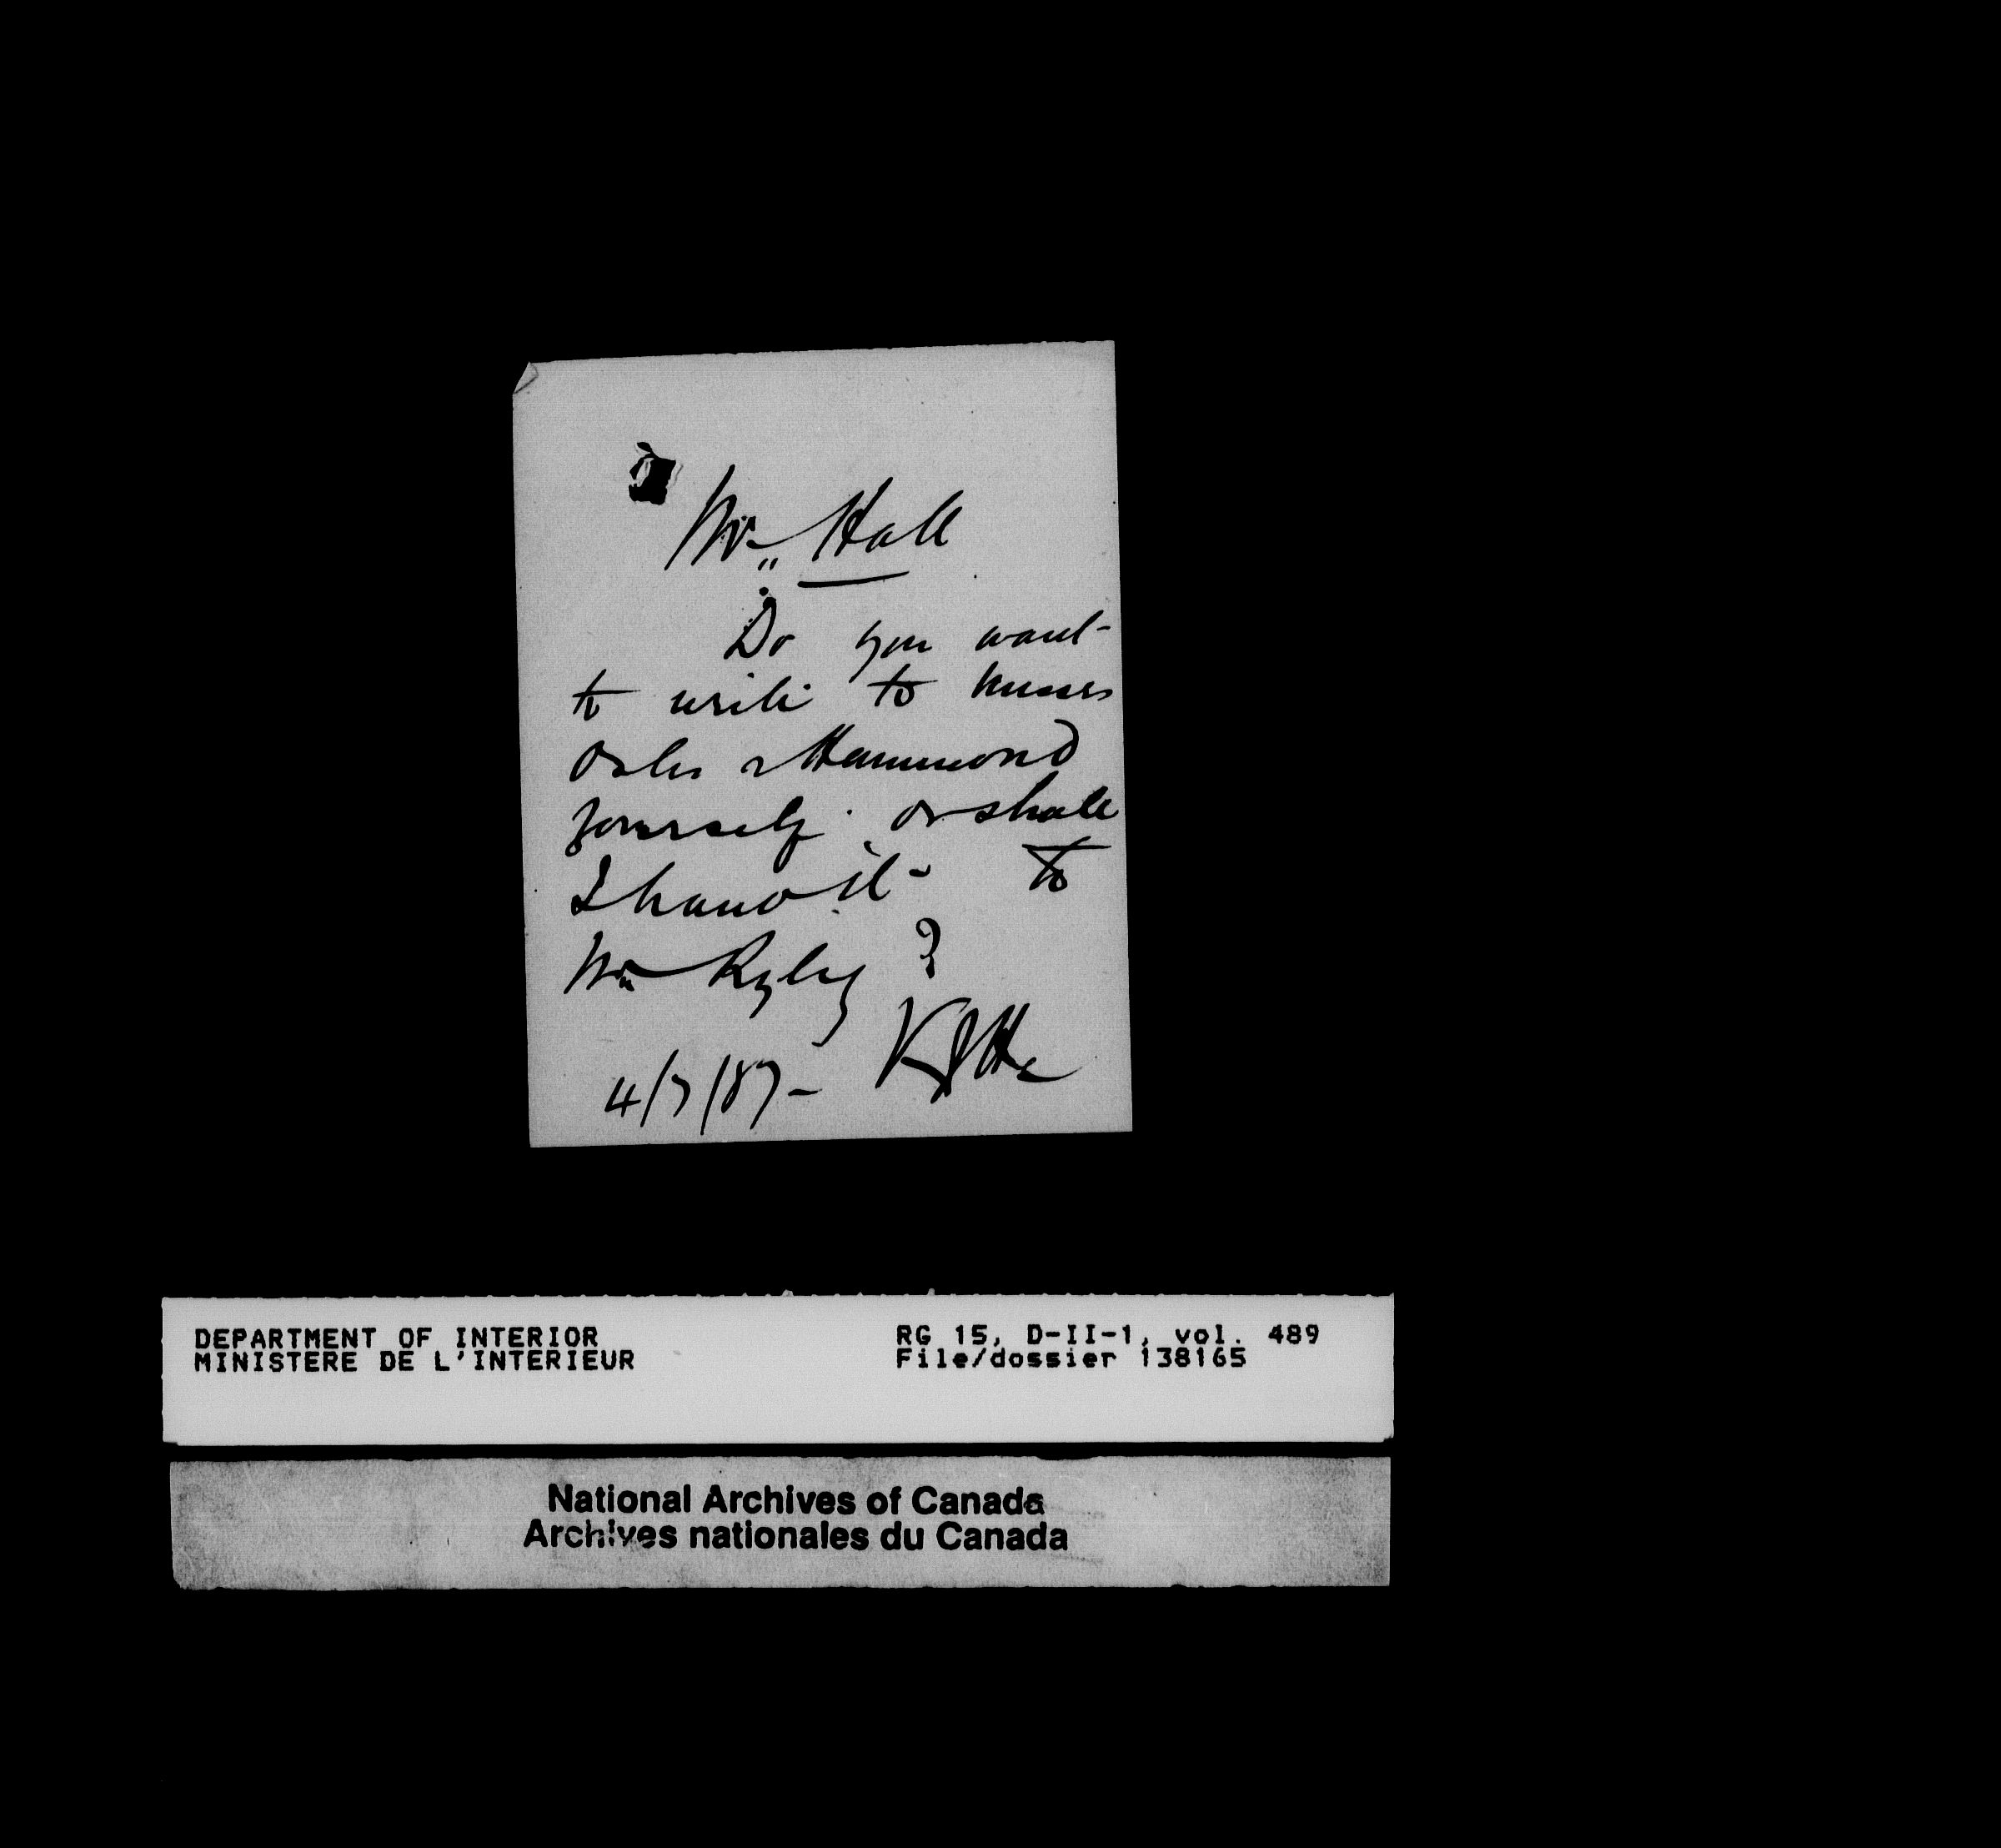 Mr. Hall
Do you want
to write to Messrs
Osler & Hammond
yourself or shall
I hand it to
Mr Ryley ?
4/7/87-
DEPARTMENT OF INTERIOR
MINISTERE DE L'INTERIEUR
RG 15, D-II-1, vol. 489
File/dossier 138165
National Archives of Canada
Archives nationales du Canada